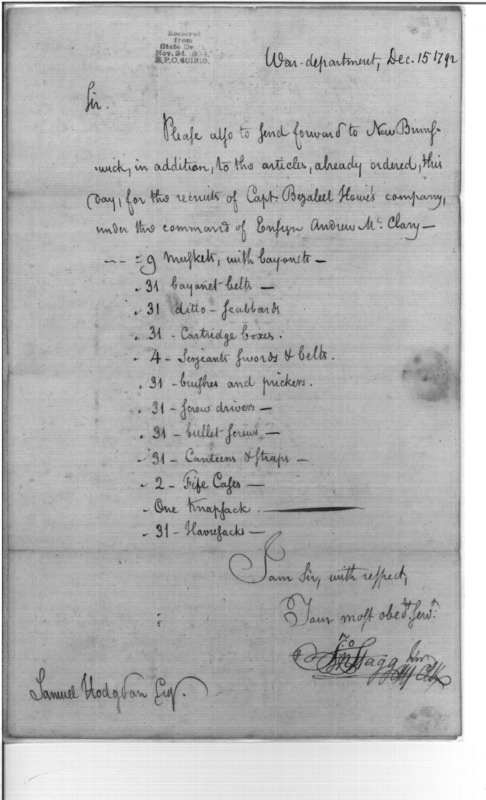 Received
from
State De
Nov. 24.
R.P.O. 401310.
War-department, Dec. 15 1792
Sir.
Please also to send forward to New Bruns-
wick, in addition, to the articles, already ordered, this
day, for the recruits of Capt. Bezaleel Howe's company,
under the command of Ensign Andrew Mc. Clary —
9 Muskets, with bayonets —
31 bayonet belts —
31 ditto - scabbards
31 - Cartridge boxes.
4 - Serjeants swords & belts.
31 - brushes and prickers.
31 - screw drivers —
31 - bullet screws —
31 - Canteens & Straps —
2 - Fife Cases —
One Knapsack.
31 - Havresacks —
I am Sir, with respect,
Your most obedt. Servt.
Jno Stagg Junr
Samuel Hodgdon Esq.